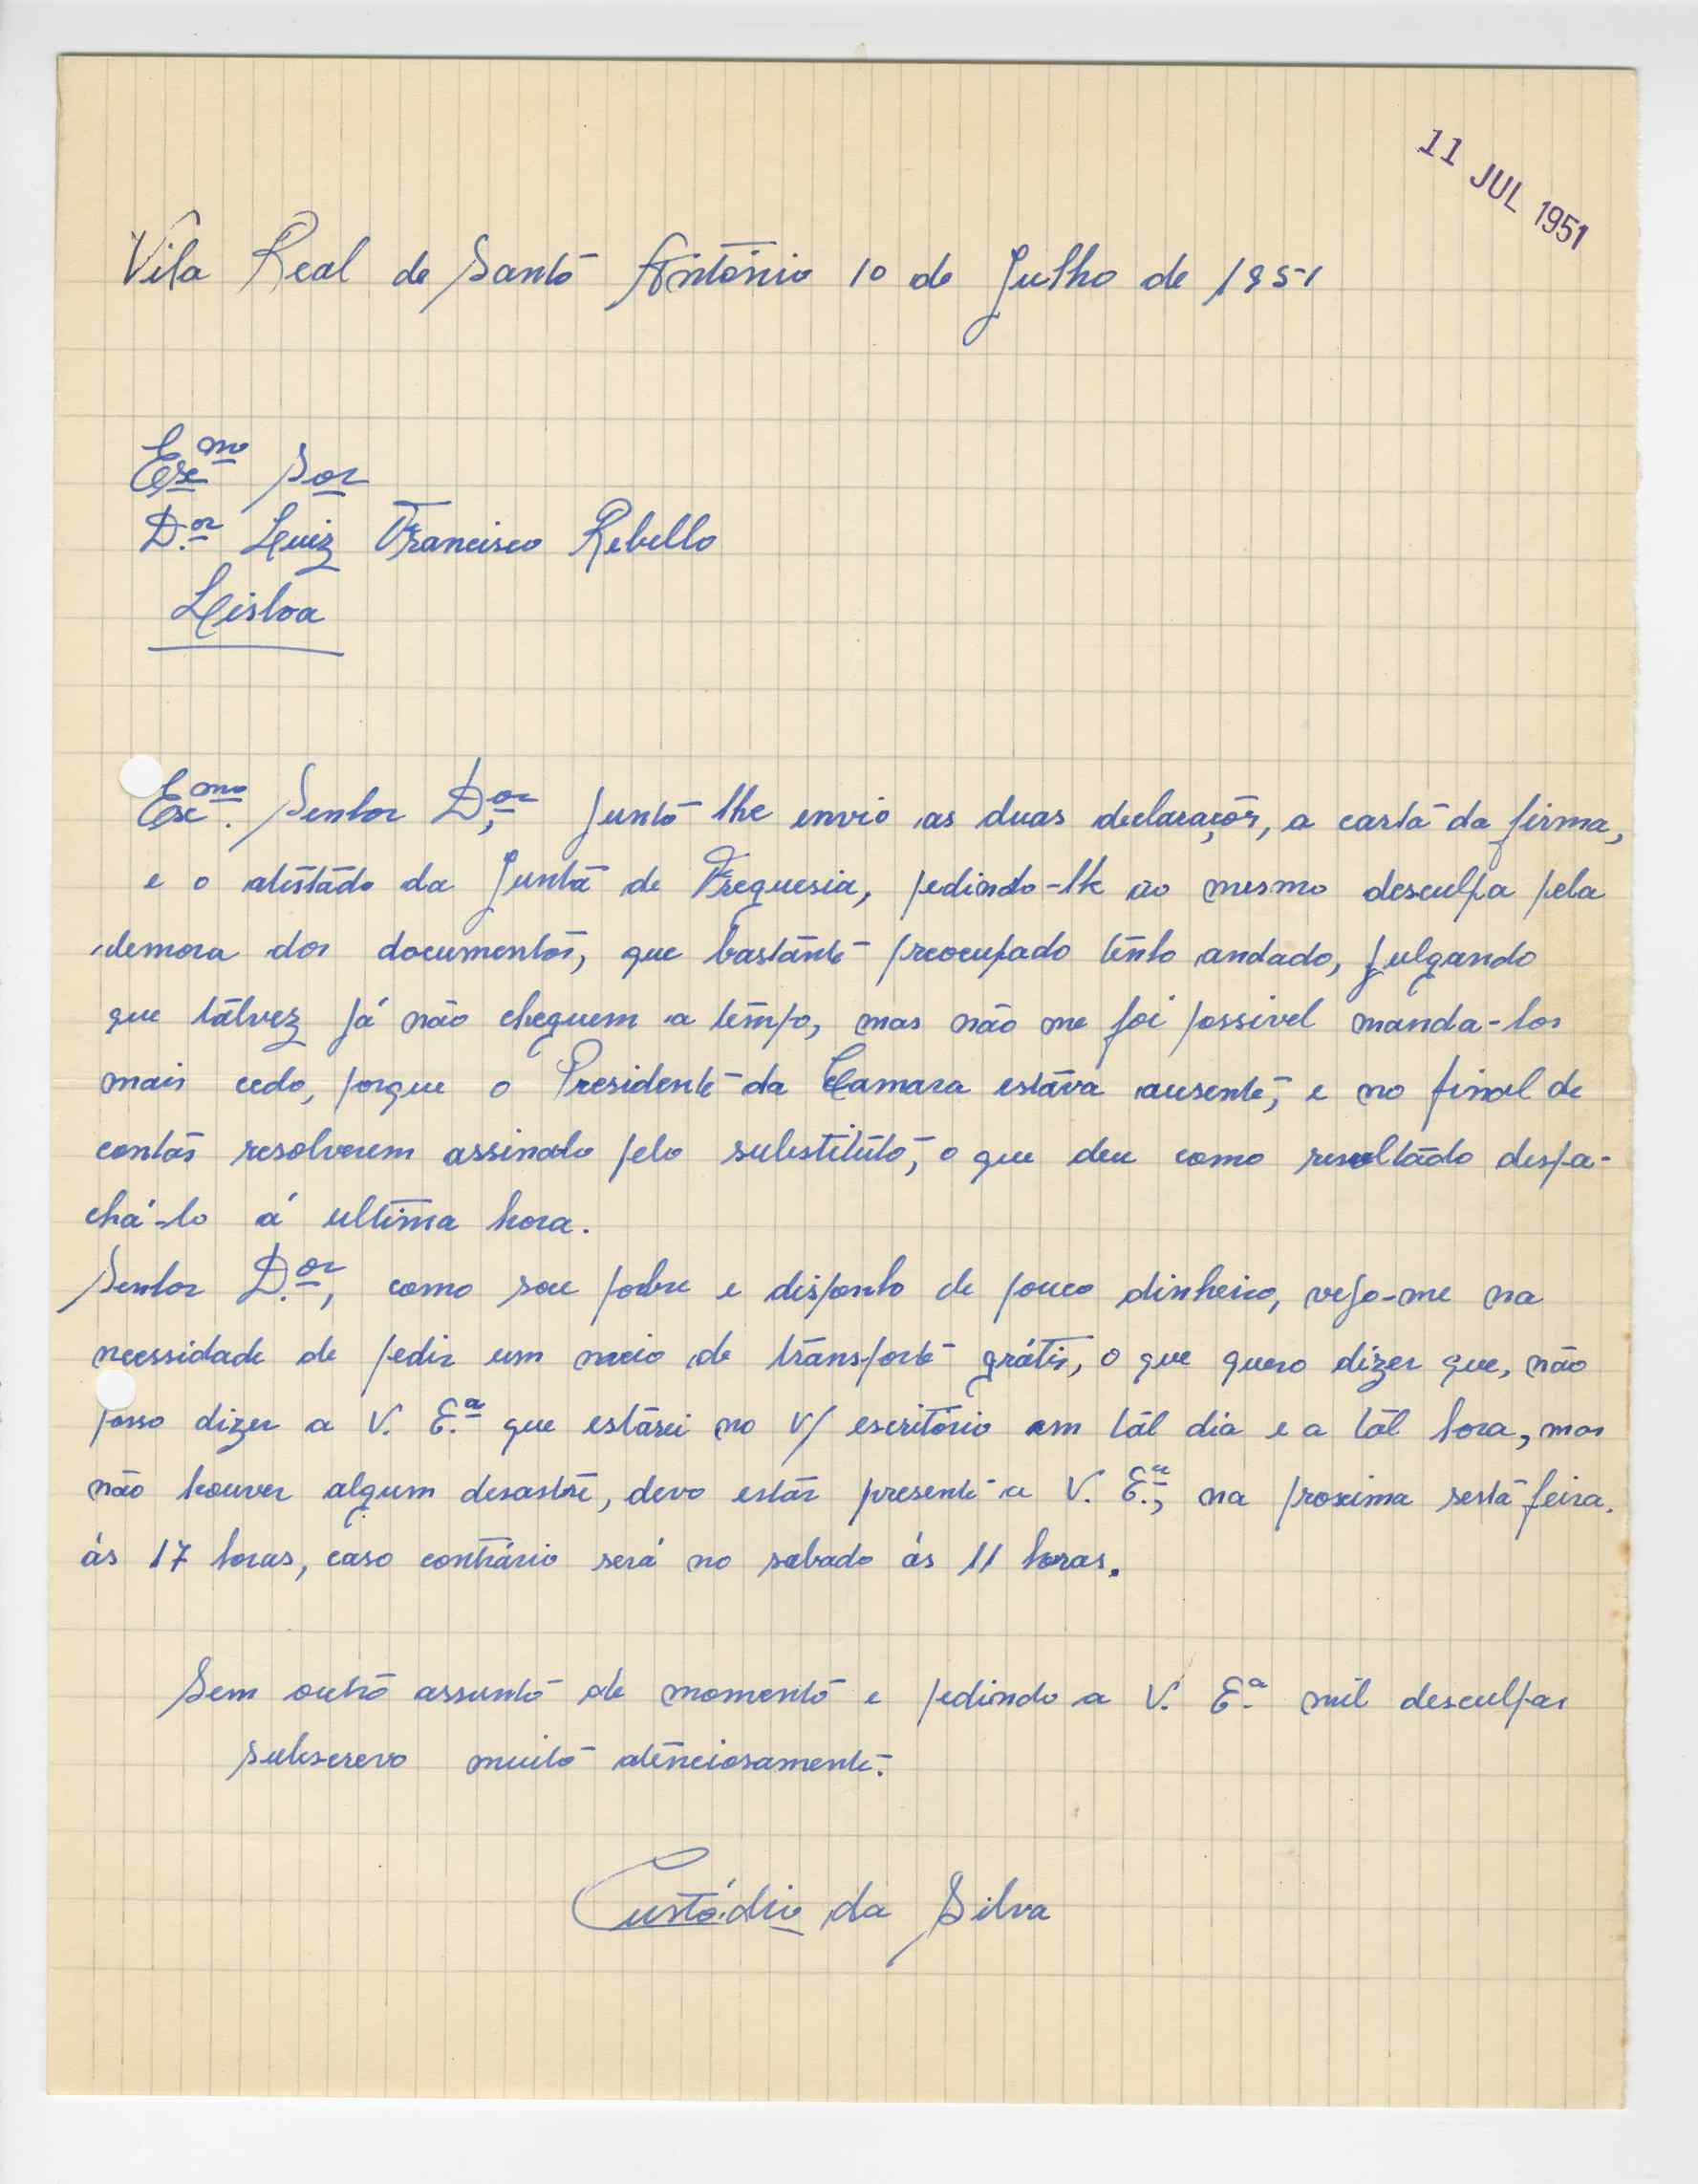 11 JUL 1951
Vila Real de Santo António 10 de Julho de 1951
Exmo Sor
D.or Luiz Francisco Rebello
Lisboa
Exmo. Senhor D.or, Junto lhe envio as duas declarações, a carta da firma,
e o atestado da Junta de Freguesia, pedindo-lhe ao mesmo desculpa pela
demora dos documentos, que bastante preocupado tenho andado, julgando
que talvez já não cheguem a tempo, mas não me foi possivel manda-los
mais cedo, porque o Presidente da Camara estava ausente, e no final de
contas resolveram assinado pelo substituto, o que deu como resultado despa-
chá-lo á ultima hora.
Senhor D.or, como sou pobre e disponho de pouco dinheiro, vejo-me na
necessidade de pedir um meio de transporte grátis, o que quero dizer que, não
posso dizer a V. E.a que estarei no V/ escritório em tal dia e a tal hora, mas
não houver algum desastre, devo estar presente a V. E.a, na proxima sesta feira.
ás 17 horas, caso contrário será no sabado ás 11 horas.
Sem outro assunto de momento e pedindo a V. E.a mil desculpas
subscrevo muito atenciosamente.
Custódio da Silva